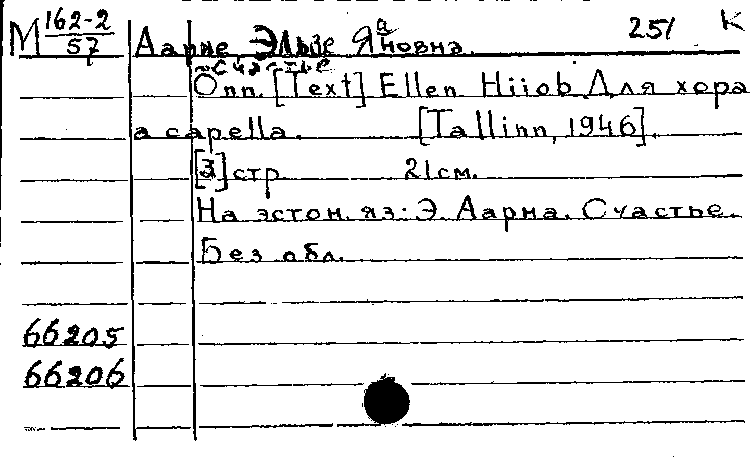 М 162-2/57 Аарне Эльзе Яановна. 251 К
Счастье
Õnn. [Text] Ellen Hiiob. Для хора
a capella. [Tallinn, 1946].
[3] стр. 21 см.
На эстон. яз: Э. Аарна. Счастье.
Без обл.
66205
66206